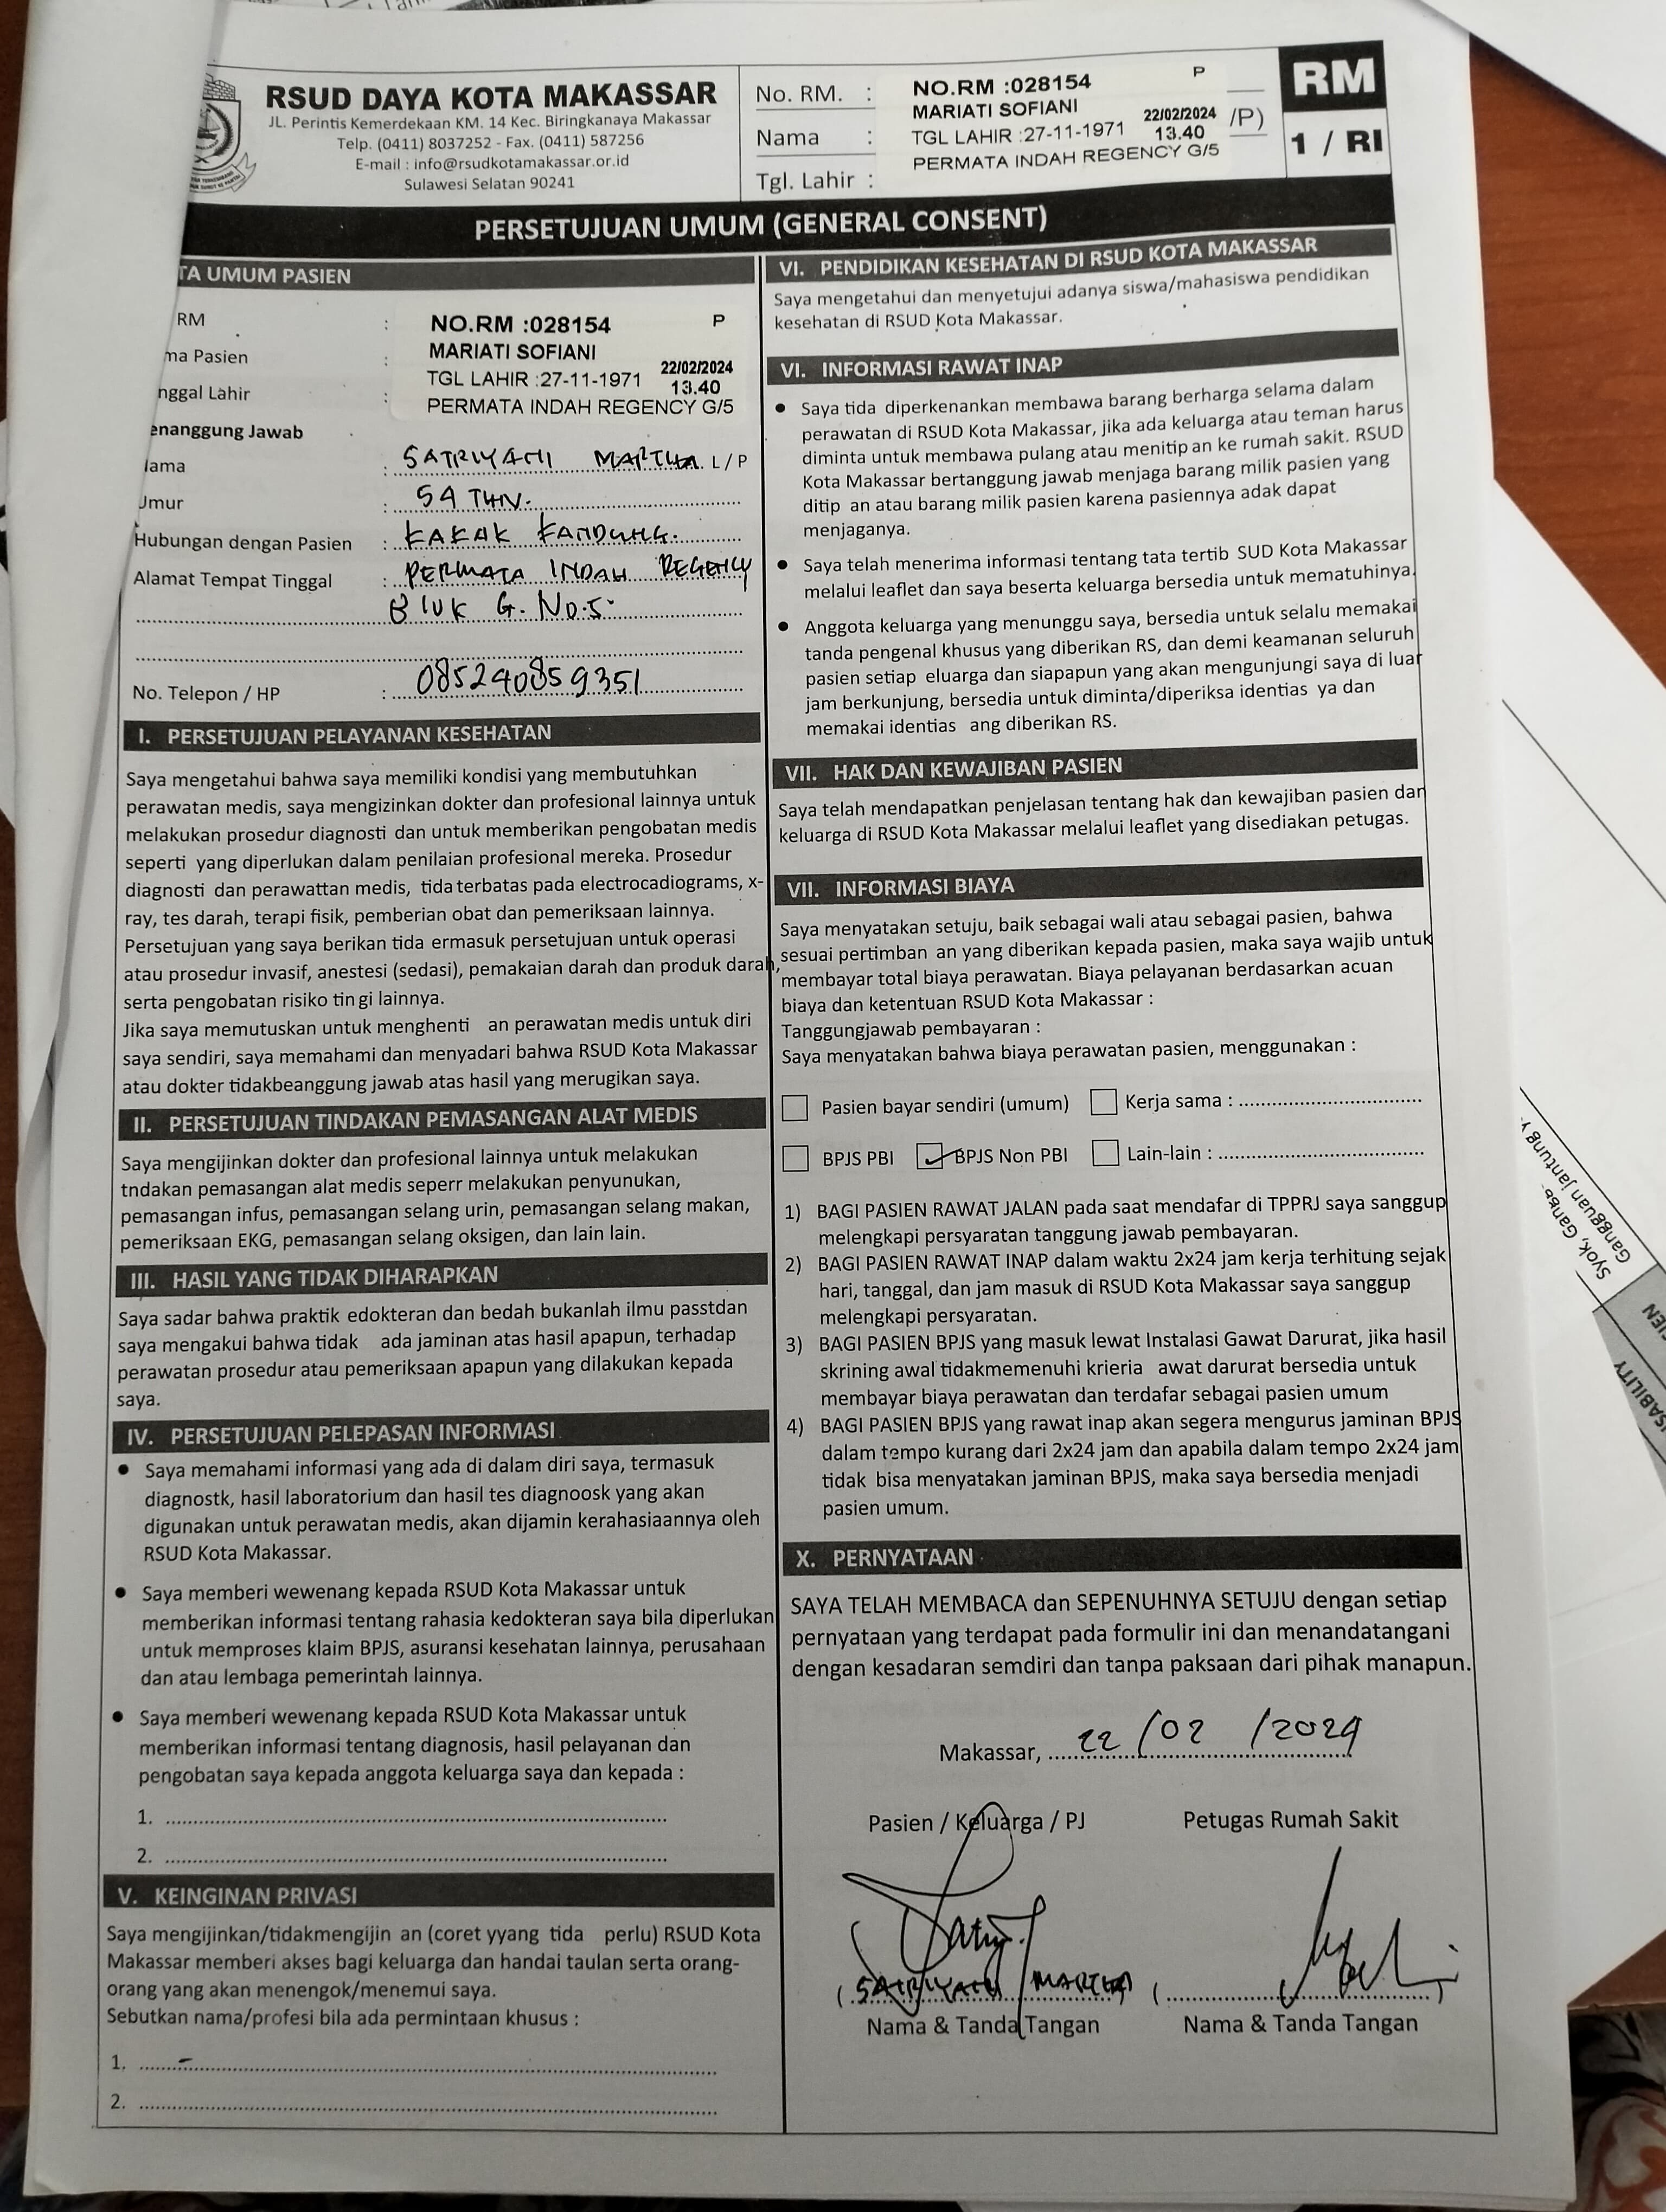 RSUD DAYA KOTA MAKASSAR
JL. Perintis Kemerdekaan KM. 14 Kec. Biringkanaya Makassar
Telp. (0411) 8037252 - Fax. (0411) 587256
E-mail : info@rsudkotamakassar.or.id
Sulawesi Selatan 90241
No. RM. :
Nama :
Tgl. Lahir :
NO.RM :028154 P
MARIATI SOFIANI
22/02/2024
TGL LAHIR :27-11-1971 13.40
PERMATA INDAH REGENCY G/5
/P)
RM
1 / RI
PERSETUJUAN UMUM (GENERAL CONSENT)
TA UMUM PASIEN
RM :
ma Pasien :
nggal Lahir :
NO.RM :028154 P
MARIATI SOFIANI
22/02/2024
TGL LAHIR :27-11-1971 13.40
PERMATA INDAH REGENCY G/5
enanggung Jawab
lama : SATRIYANI MARTHA L / P
Umur : 54 THN.
Hubungan dengan Pasien : KAKAK KANDUNG.
Alamat Tempat Tinggal : PERMATA INDAH REGENCY
BLOK G. NO.5
No. Telepon / HP : 085240859351
I. PERSETUJUAN PELAYANAN KESEHATAN
Saya mengetahui bahwa saya memiliki kondisi yang membutuhkan
perawatan medis, saya mengizinkan dokter dan profesional lainnya untuk
melakukan prosedur diagnosti dan untuk memberikan pengobatan medis
seperti yang diperlukan dalam penilaian profesional mereka. Prosedur
diagnosti dan perawattan medis, tida terbatas pada electrocadiograms, x-
ray, tes darah, terapi fisik, pemberian obat dan pemeriksaan lainnya.
Persetujuan yang saya berikan tida ermasuk persetujuan untuk operasi
atau prosedur invasif, anestesi (sedasi), pemakaian darah dan produk darah,
serta pengobatan risiko tin gi lainnya.
Jika saya memutuskan untuk menghenti an perawatan medis untuk diri
saya sendiri, saya memahami dan menyadari bahwa RSUD Kota Makassar
atau dokter tidakbeanggung jawab atas hasil yang merugikan saya.
II. PERSETUJUAN TINDAKAN PEMASANGAN ALAT MEDIS
Saya mengijinkan dokter dan profesional lainnya untuk melakukan
tndakan pemasangan alat medis seperr melakukan penyunukan,
pemasangan infus, pemasangan selang urin, pemasangan selang makan,
pemeriksaan EKG, pemasangan selang oksigen, dan lain lain.
III. HASIL YANG TIDAK DIHARAPKAN
Saya sadar bahwa praktik edokteran dan bedah bukanlah ilmu passtdan
saya mengakui bahwa tidak ada jaminan atas hasil apapun, terhadap
perawatan prosedur atau pemeriksaan apapun yang dilakukan kepada
saya.
IV. PERSETUJUAN PELEPASAN INFORMASI
● Saya memahami informasi yang ada di dalam diri saya, termasuk
diagnostk, hasil laboratorium dan hasil tes diagnoosk yang akan
digunakan untuk perawatan medis, akan dijamin kerahasiaannya oleh
RSUD Kota Makassar.
● Saya memberi wewenang kepada RSUD Kota Makassar untuk
memberikan informasi tentang rahasia kedokteran saya bila diperlukan
untuk memproses klaim BPJS, asuransi kesehatan lainnya, perusahaan
dan atau lembaga pemerintah lainnya.
● Saya memberi wewenang kepada RSUD Kota Makassar untuk
memberikan informasi tentang diagnosis, hasil pelayanan dan
pengobatan saya kepada anggota keluarga saya dan kepada :
1. ..........
2. ..........
V. KEINGINAN PRIVASI
Saya mengijinkan/tidakmengijin an (coret yyang tida perlu) RSUD Kota
Makassar memberi akses bagi keluarga dan handai taulan serta orang-
orang yang akan menengok/menemui saya.
Sebutkan nama/profesi bila ada permintaan khusus :
1. -
2. ..........
VI. PENDIDIKAN KESEHATAN DI RSUD KOTA MAKASSAR
Saya mengetahui dan menyetujui adanya siswa/mahasiswa pendidikan
kesehatan di RSUD Kota Makassar.
VI. INFORMASI RAWAT INAP
● Saya tida diperkenankan membawa barang berharga selama dalam
perawatan di RSUD Kota Makassar, jika ada keluarga atau teman harus
diminta untuk membawa pulang atau menitip an ke rumah sakit. RSUD
Kota Makassar bertanggung jawab menjaga barang milik pasien yang
ditip an atau barang milik pasien karena pasiennya adak dapat
menjaganya.
● Saya telah menerima informasi tentang tata tertib SUD Kota Makassar
melalui leaflet dan saya beserta keluarga bersedia untuk mematuhinya.
● Anggota keluarga yang menunggu saya, bersedia untuk selalu memakai
tanda pengenal khusus yang diberikan RS, dan demi keamanan seluruh
pasien setiap eluarga dan siapapun yang akan mengunjungi saya di luar
jam berkunjung, bersedia untuk diminta/diperiksa identias ya dan
memakai identias ang diberikan RS.
VII. HAK DAN KEWAJIBAN PASIEN
Saya telah mendapatkan penjelasan tentang hak dan kewajiban pasien dan
keluarga di RSUD Kota Makassar melalui leaflet yang disediakan petugas.
VII. INFORMASI BIAYA
Saya menyatakan setuju, baik sebagai wali atau sebagai pasien, bahwa
sesuai pertimban an yang diberikan kepada pasien, maka saya wajib untuk
membayar total biaya perawatan. Biaya pelayanan berdasarkan acuan
biaya dan ketentuan RSUD Kota Makassar :
Tanggungjawab pembayaran :
Saya menyatakan bahwa biaya perawatan pasien, menggunakan :
Pasien bayar sendiri (umum) Kerja sama : ..........
BPJS PBI ✓ BPJS Non PBI Lain-lain : ..........
1) BAGI PASIEN RAWAT JALAN pada saat mendafar di TPPRJ saya sanggup
melengkapi persyaratan tanggung jawab pembayaran.
2) BAGI PASIEN RAWAT INAP dalam waktu 2x24 jam kerja terhitung sejak
hari, tanggal, dan jam masuk di RSUD Kota Makassar saya sanggup
melengkapi persyaratan.
3) BAGI PASIEN BPJS yang masuk lewat Instalasi Gawat Darurat, jika hasil
skrining awal tidakmemenuhi krieria awat darurat bersedia untuk
membayar biaya perawatan dan terdafar sebagai pasien umum
4) BAGI PASIEN BPJS yang rawat inap akan segera mengurus jaminan BPJS
dalam tempo kurang dari 2x24 jam dan apabila dalam tempo 2x24 jam
tidak bisa menyatakan jaminan BPJS, maka saya bersedia menjadi
pasien umum.
X. PERNYATAAN
SAYA TELAH MEMBACA dan SEPENUHNYA SETUJU dengan setiap
pernyataan yang terdapat pada formulir ini dan menandatangani
dengan kesadaran semdiri dan tanpa paksaan dari pihak manapun.
Makassar, 22 /02 /2024
Pasien / Keluarga / PJ Petugas Rumah Sakit
( SATRIYANI MARTHA ) ( .......... )
Nama & Tanda Tangan Nama & Tanda Tangan
Syok, Gang
Gangguan jantung
IEN
SABILITY